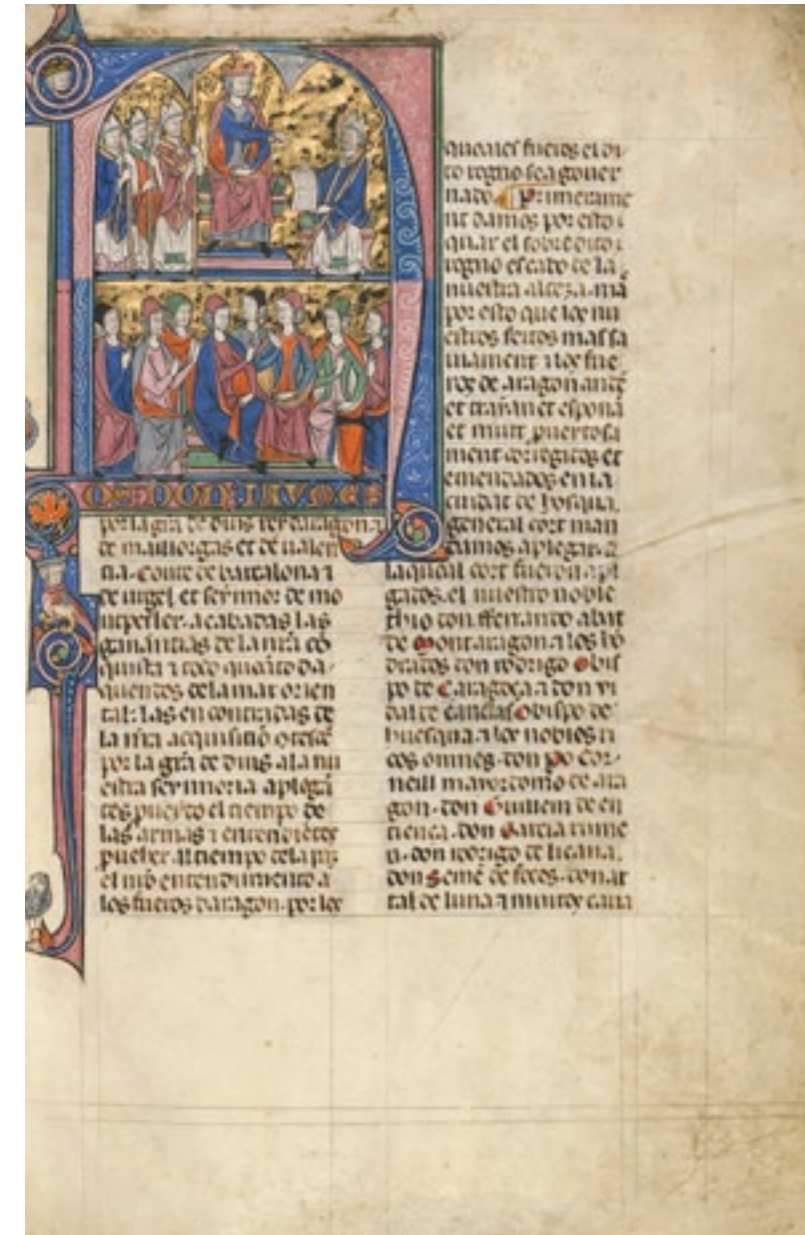 NOS DON IAVMES
por la gr̃a de dius rey daragon ⁊
de mailorgas et de ualen
tia. Conte de barcalona ⁊
de urgel et seynnor de mo
ntpesler. acabadas las
ganantias de la nr̃a cõ
quista ⁊ todo quãto da
quendos de la mar orien
tal: las encontradas de
la nr̃a acquisitiõ
por la gr̃a de dius a la nu
estra seynnoria aplega
das puesto el tiempo de
las armas ⁊
al tiempo de la paz
el nr̃o entendimiento a
los fueros daragon. por los
quoales fueros el di
to regno sea gouer
nado. Primerame
nt damos por esto
quar el sobredito
regno es cabo de la
nuestra alteza. mã
por esto que los nu
estros feitos
⁊ los fue
ros de aragon
et
et
ment corregitos et
emendados en la
ciudat de hosqua.
general cort man
damos aplegar. a
la quoal cort fueron apl
gatos. el nuestro noble
thio don fferrando abat
de Mont aragon. ⁊ los hõ
dratos don rodrigo obis
po de Caragoça. ⁊ don vi
dal de canelas Obispo de
huesqua. ⁊ los nobles ri
cos omnes. don po Cor
neill mayordomo de ara
gon. don Guillem de en
tienca. don Garcia rome
u. don rodrigo de licana.
don Semẽ de foces. don ar
tal de luna ⁊ muitos caua